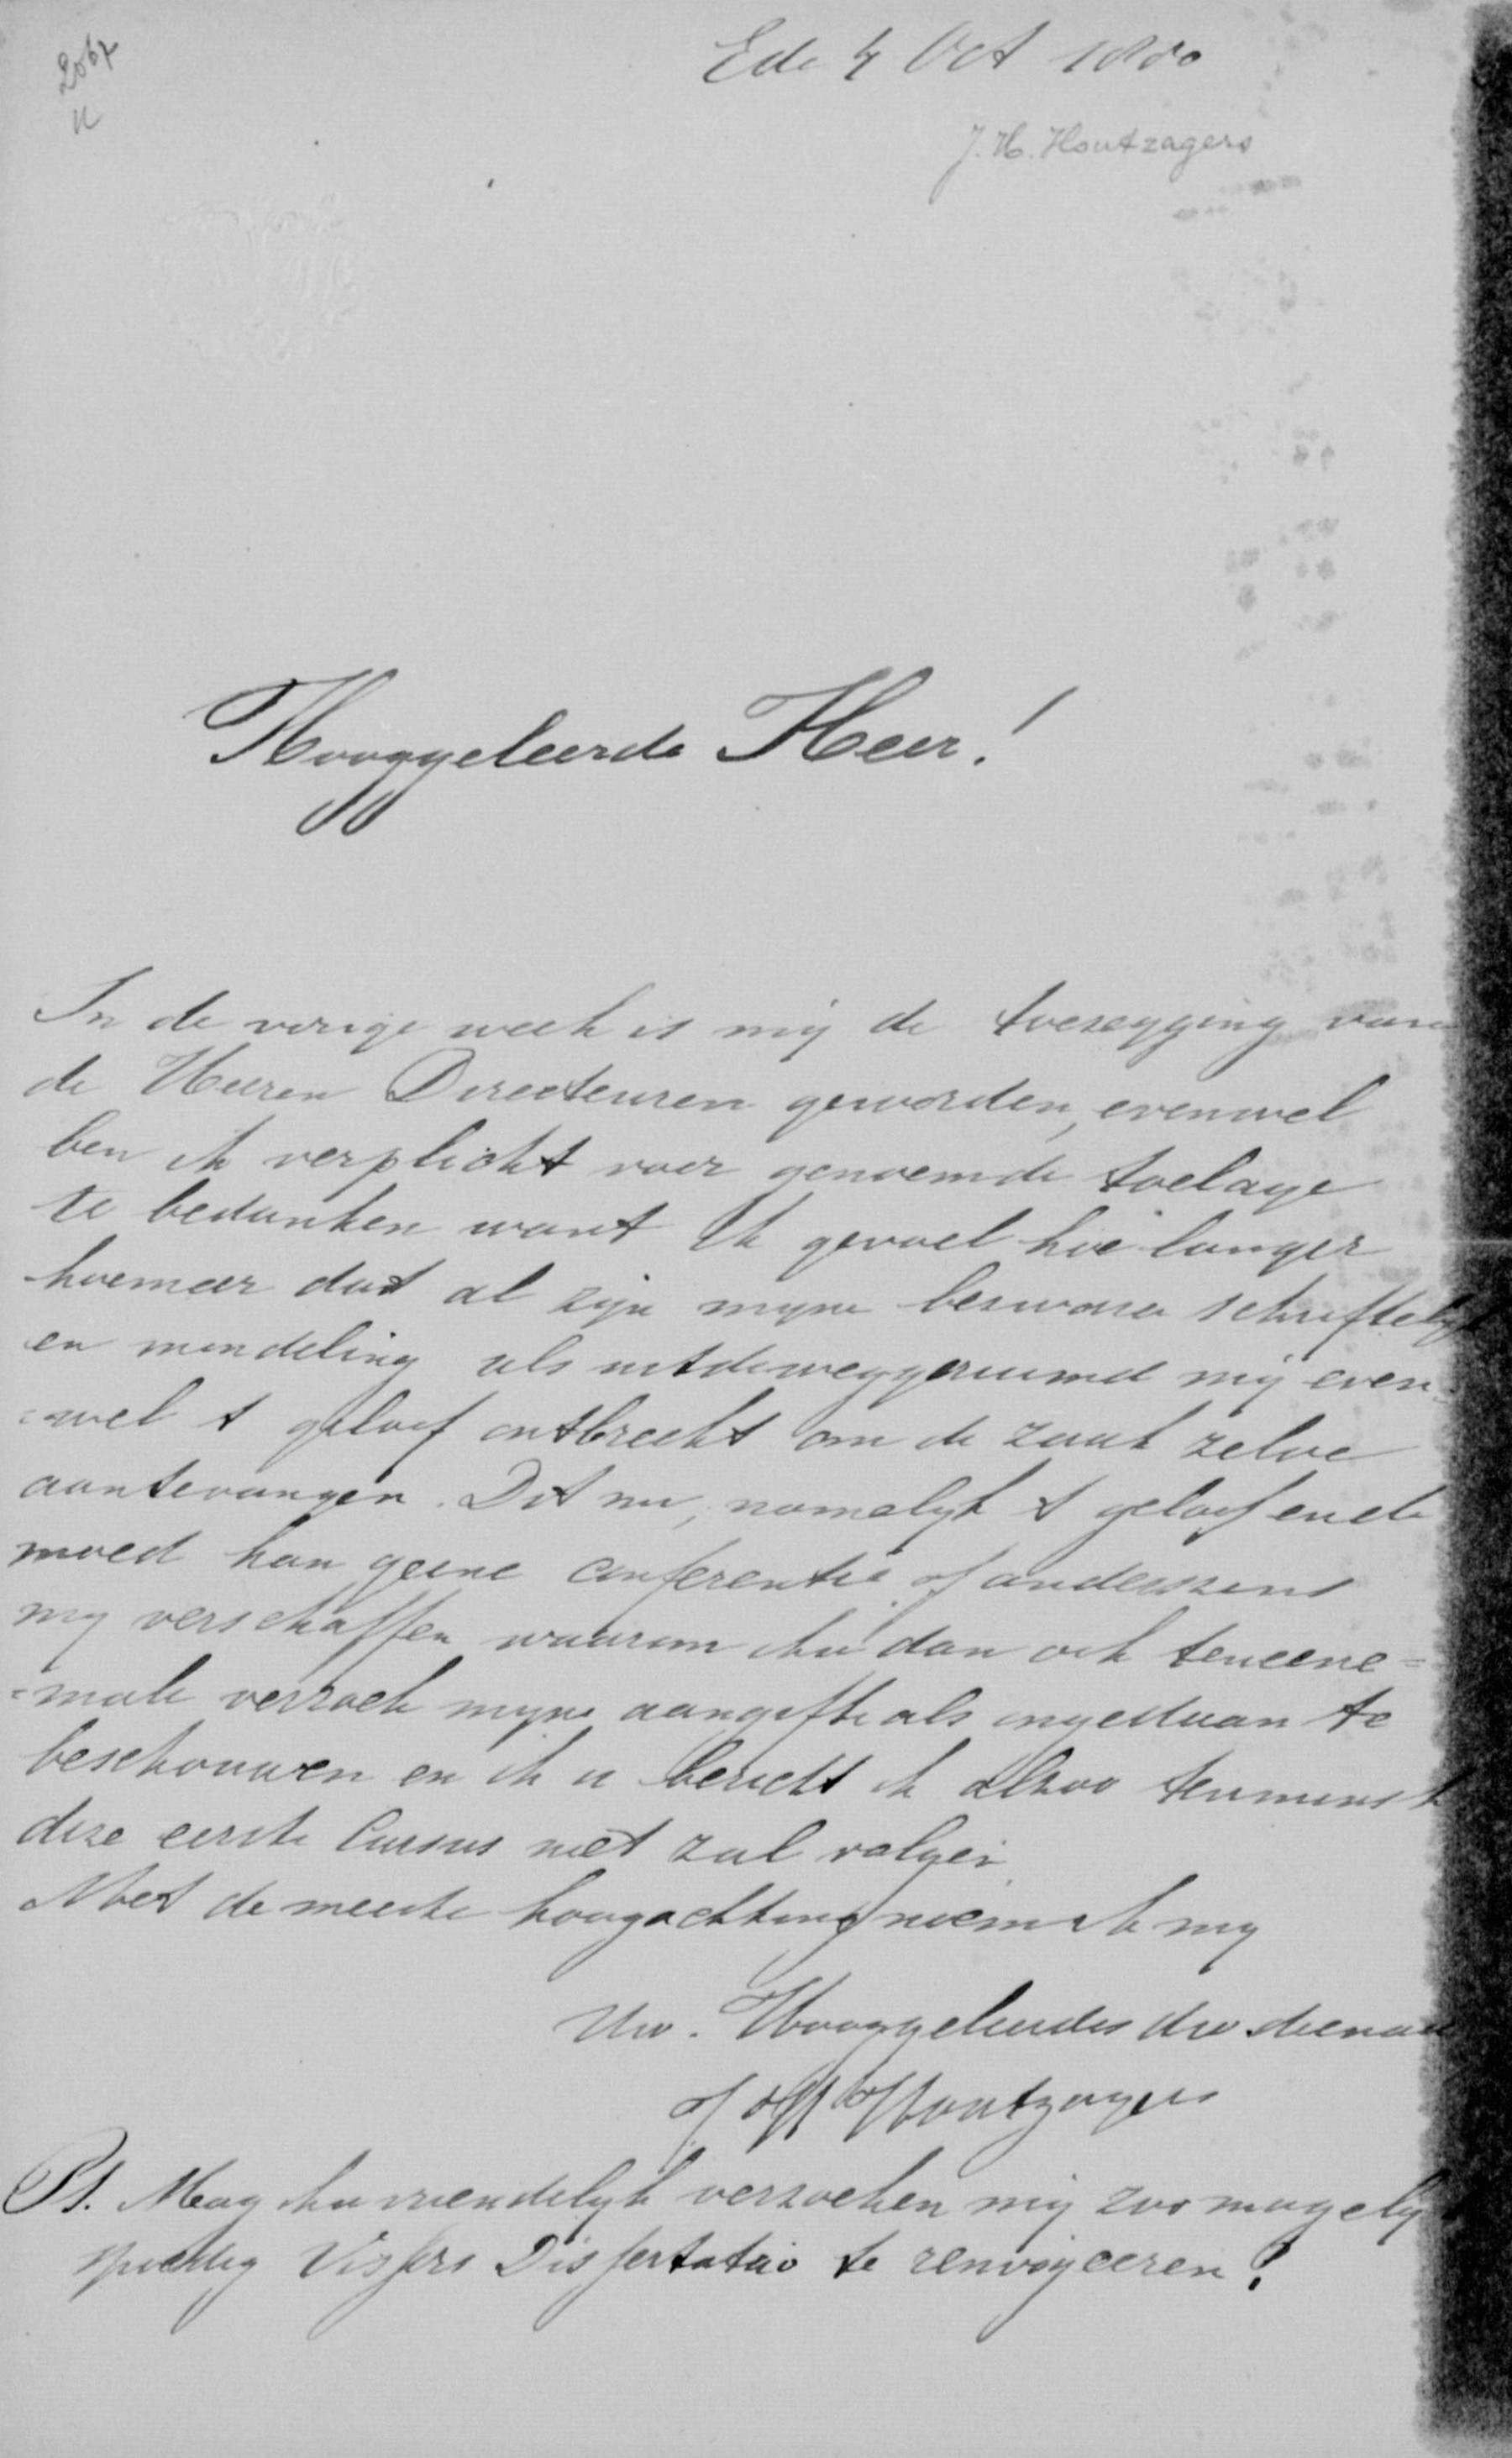 2067
Ede 4 Oct 1880
J. H. Houtzagers
Hooggeleerde Heer!
In de vorige week is mij de toezegging van
de Heeren Directeuren geworden, evenwel
ben ik verplicht voor genoemde toelage
te bedanken want ik gevoel hoe langer
hoemeer dat al zijn mijne bezwaren schriftelijk
en mondeling als uitdeweggeruimd mij even=
=wel t geloof ontbreekt om de zaak zelve
aantevangen. Dit nu, namelijk t geloof en de
moed kan geene conferentie of anderszins
mij verschaffen waarom ik u dan ook teneene=
=male verzoek mijne aangifte als ongedaan te
beschouwen en ik u bericht ik alzoo tenminste
deze eerste Cursus niet zal volgen.
Met de meeste hoogachting noem ik mij
Uw. Hooggeleerdes dw dienaar
J H Houtzagers
PS. Mag ik u vriendelijk verzoeken mij zoo mogelijk
spoedig Vissers Dissertatio te renvoijeeren!